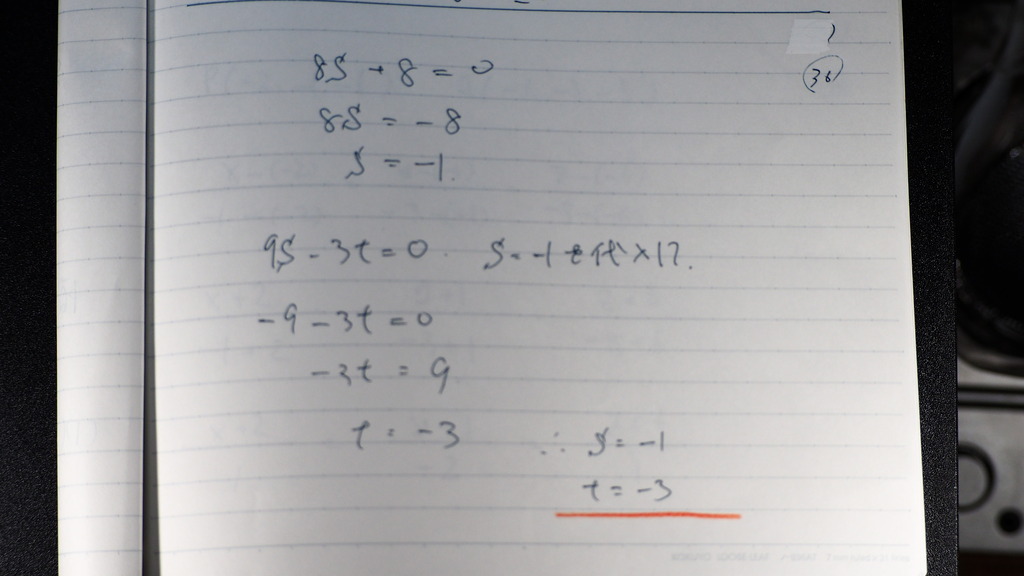 36
8s + 8 = 0
8s = -8
s = -1.
9s - 3t = 0 s = -1を代入して.
-9 - 3t = 0
-3t = 9
t = -3
∴ s = -1
t = -3